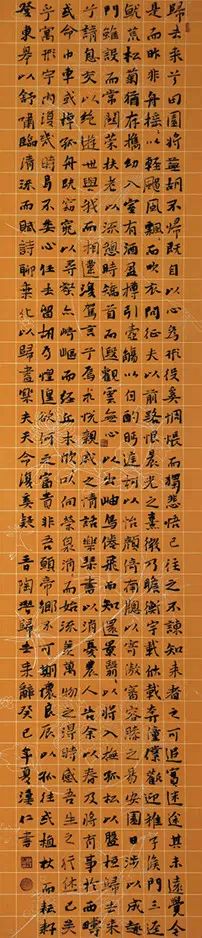 歸去來兮田園將蕪胡不歸既自以心為形役奚惆悵而獨悲悟已往之不諫知來者之可追實迷途其未遠覺今
是而昨非舟搖搖以輕颺風飄飄而吹衣問征夫以前路恨晨光之熹微乃瞻衡宇載欣載奔僮僕歡迎稚子候門三逕
就荒松菊猶存攜幼入室有酒盈樽引壺觴以自酌眄庭柯以怡顏倚南窗以寄傲審容膝之易安園日涉以成趣
門雖設而常關策扶老以流憩時矯首而遐觀雲無心以出岫鳥倦飛而知還景翳翳以將入撫孤松以盤桓歸去來
兮請息交以絕遊世與我而相違復駕言兮焉求悅親戚之情話樂琴書以消憂農人告余以春及將有事於西疇
或命巾車或棹孤舟既窈窕以尋壑亦崎嶇而經丘木欣欣以向榮泉涓涓而始流羨萬物之得時感吾生之行休已矣
乎寓形宇內復幾時曷不委心任去留胡為乎遑遑欲何之富貴非吾願帝鄉不可期懷良辰以孤往或植杖而耘耔
登東皋以舒嘯臨清流而賦詩聊乘化以歸盡樂夫天命復奚疑 晉陶歸去來辭癸巳年夏漢仁書